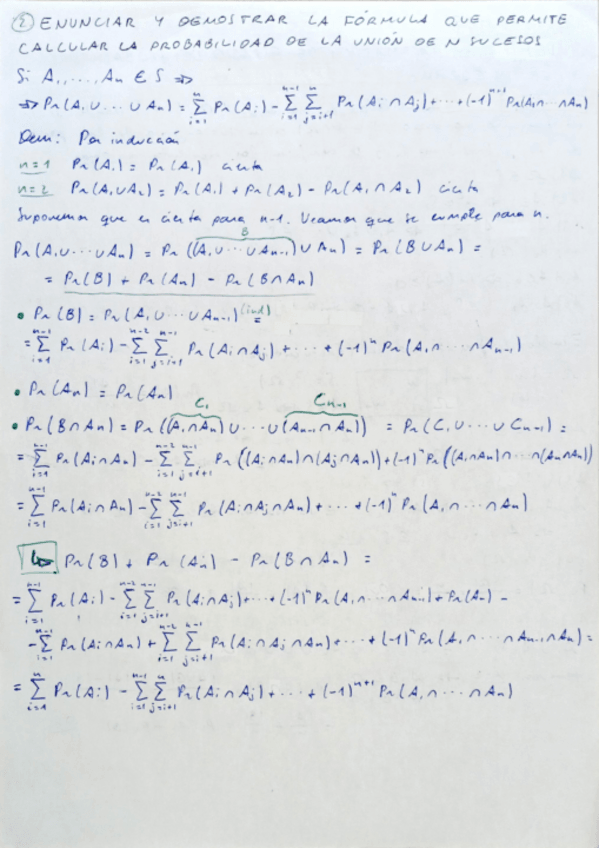 ② ENUNCIAR Y DEMOSTRAR LA FÓRMULA QUE PERMITE
CALCULAR LA PROBABILIDAD DE LA UNIÓN DE N SUCESOS
Si A₁, ..., Aₙ ∈ S ⇒
⇒ Pr(A₁ ∪ ··· ∪ Aₙ) = ∑_{i=1}^{n} Pr(Aᵢ) - ∑_{i=1}^{n-1} ∑_{j=i+1}^{n} Pr(Aᵢ ∩ Aⱼ) + ··· + (-1)^{n+1} Pr(A₁ ∩ ··· ∩ Aₙ)
Dem: Por inducción
n=1 Pr(A₁) = Pr(A₁) cierta
n=2 Pr(A₁ ∪ A₂) = Pr(A₁) + Pr(A₂) - Pr(A₁ ∩ A₂) cierta
Suponemos que es cierta para n-1. Veamos que se cumple para n.
B
Pr(A₁ ∪ ··· ∪ Aₙ) = Pr((A₁ ∪ ··· ∪ Aₙ₋₁) ∪ Aₙ) = Pr(B ∪ Aₙ) =
= Pr(B) + Pr(Aₙ) - Pr(B ∩ Aₙ)
• Pr(B) = Pr(A₁ ∪ ··· ∪ Aₙ₋₁) (ind) =
= ∑_{i=1}^{n-1} Pr(Aᵢ) - ∑_{i=1}^{n-2} ∑_{j=i+1}^{n-1} Pr(Aᵢ ∩ Aⱼ) + ··· + (-1)^{n} Pr(A₁ ∩ ··· ∩ Aₙ₋₁)
• Pr(Aₙ) = Pr(Aₙ)
C₁ Cₙ₋₁
• Pr(B ∩ Aₙ) = Pr((A₁ ∩ Aₙ) ∪ ··· ∪ (Aₙ₋₁ ∩ Aₙ)) = Pr(C₁ ∪ ··· ∪ Cₙ₋₁) =
= ∑_{i=1}^{n-1} Pr(Aᵢ ∩ Aₙ) - ∑_{i=1}^{n-2} ∑_{j=i+1}^{n-1} Pr((Aᵢ ∩ Aₙ) ∩ (Aⱼ ∩ Aₙ)) + (-1)^{n} Pr((A₁ ∩ Aₙ) ∩ ··· ∩ (Aₙ ∩ Aₙ))
= ∑_{i=1}^{n-1} Pr(Aᵢ ∩ Aₙ) - ∑_{i=1}^{n-2} ∑_{j=i+1}^{n-1} Pr(Aᵢ ∩ Aⱼ ∩ Aₙ) + ··· + (-1)^{n} Pr(A₁ ∩ ··· ∩ Aₙ)
↳ Pr(B) + Pr(Aₙ) - Pr(B ∩ Aₙ) =
= ∑_{i=1}^{n-1} Pr(Aᵢ) - ∑_{i=1}^{n-2} ∑_{j=i+1}^{n-1} Pr(Aᵢ ∩ Aⱼ) + ··· + (-1)^{n} Pr(A₁ ∩ ··· ∩ Aₙ₋₁) + Pr(Aₙ) -
- ∑_{i=1}^{n-1} Pr(Aᵢ ∩ Aₙ) + ∑_{i=1}^{n-2} ∑_{j=i+1}^{n-1} Pr(Aᵢ ∩ Aⱼ ∩ Aₙ) + ··· + (-1)^{n} Pr(A₁ ∩ ··· ∩ Aₙ₋₁ ∩ Aₙ) =
= ∑_{i=1}^{n} Pr(Aᵢ) - ∑_{i=1}^{n-1} ∑_{j=i+1}^{n} Pr(Aᵢ ∩ Aⱼ) + ··· + (-1)^{n+1} Pr(A₁ ∩ ··· ∩ Aₙ)